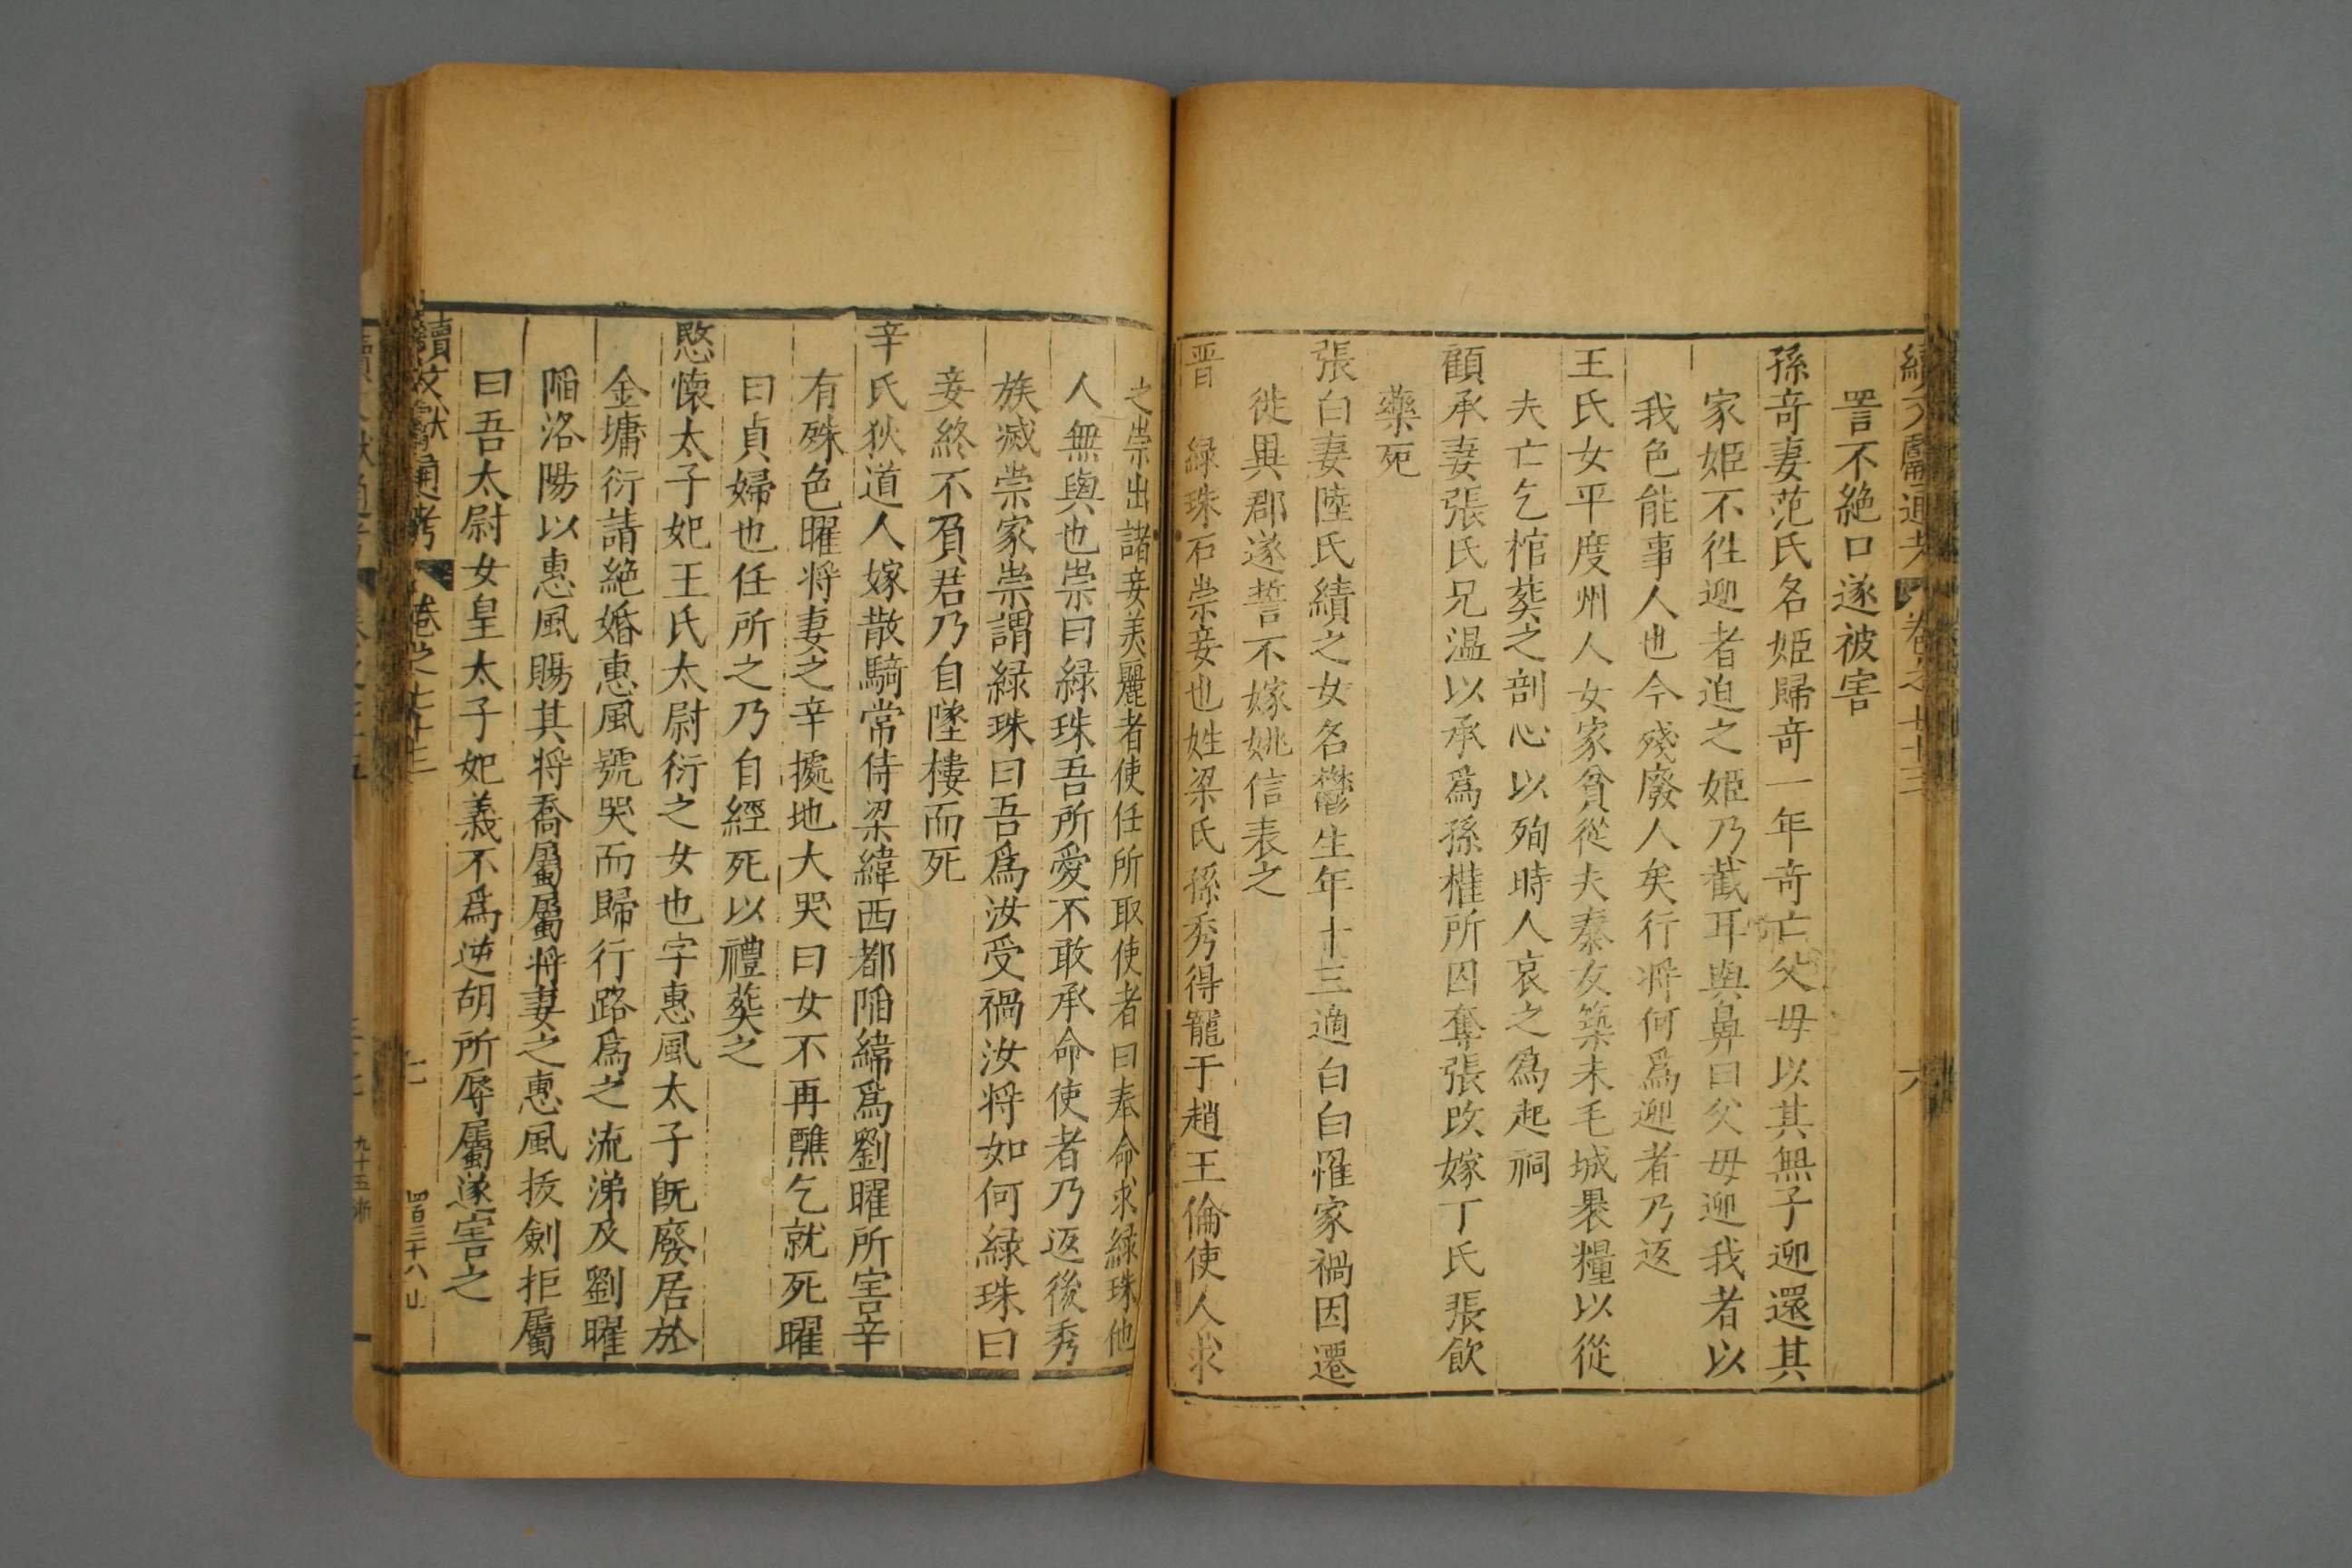 續文獻通考 卷之七十三 六
詈不絶口遂被害
孫竒妻范氏名姬歸竒一年竒亡父毋以其無子迎還其
家姬不徃迎者迫之姬乃截耳與鼻曰父毋迎我者以
我色能事人也今殘廢人矣行将何爲迎者乃返
王氏女平度州人女家貧從夫秦女築未毛城褁糧以從
夫亡乞棺葬之剖心以殉時人哀之爲起祠
顧承妻張氏兄温以承爲孫權所囚奪張改嫁丁氏張飲
藥死
張白妻陸氏績之女名鬱生年十三適白白罹家禍因遷
徙異郡遂誓不嫁姚信表之
晋 緑珠石崇妾也姓梁氏孫秀得寵于趙王倫使人求
之崇出諸妾美麗者使任所取使者曰奉命求緑珠他
人無與也崇曰緑珠吾所愛不敢承命使者乃返後秀
族滅崇家崇謂緑珠曰吾爲汝受禍汝将如何緑珠曰
妾終不負君乃自墜樓而死
辛氏狄道人嫁散騎常侍梁緯西都陷緯爲劉曜所害辛
有殊色曜将妻之辛據地大哭曰女不再醮乞就死曜
曰貞婦也任所之乃自經死以禮葬之
愍懷太子妃王氏太尉衍之女也字惠風太子旣廢居於
金墉衍請絶婚惠風號哭而歸行路爲之流涕及劉曜
陷洛陽以惠風賜其将喬屬屬將妻之惠風拔劍拒屬
曰吾太尉女皇太子妃義不爲逆胡所辱屬遂害之
續文獻通考 卷之七十三 四百三十八 山
九十五